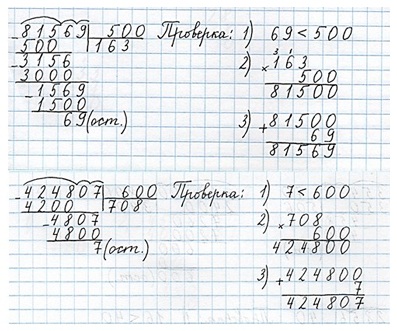 81569 | 500 Проверка: 1) 69 < 500
500 163
3156 2) × 163
3000 500
1569 81500
1500 3) + 81500
69 (ост.) 69
81569
424807 | 600 Проверка: 1) 7 < 600
4200 708
4807 2) × 708
4800 600
7 (ост.) 424800
3) + 424800
7
424807